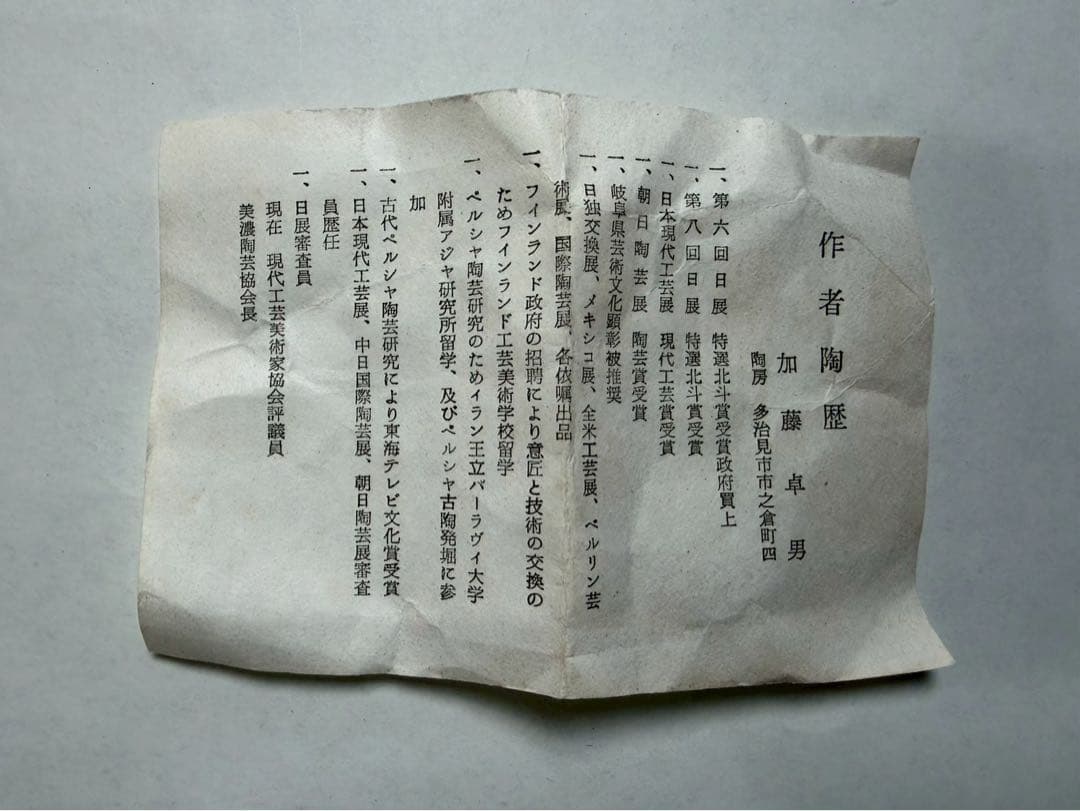 作者陶歴
加藤卓男
陶房 多治見市市之倉町四
一、第六回日展 特選北斗賞受賞政府買上
一、第八回日展 特選北斗賞受賞
一、日本現代工芸展 現代工芸賞受賞
一、朝日陶芸展 陶芸賞受賞
一、岐阜県芸術文化顕彰被推奨
一、日独交換展、メキシコ展、全米工芸展、ベルリン芸
術展、国際陶芸展、各依嘱出品
一、フィンランド政府の招聘により意匠と技術の交換の
ためフインランド工芸美術学校留学
一、ペルシャ陶芸研究のためイラン王立パーラヴィ大学
附属アジャ研究所留学、及びペルシャ古陶発堀に参
加
一、古代ペルシャ陶芸研究により東海テレビ文化賞受賞
一、日本現代工芸展、中日国際陶芸展、朝日陶芸展審査
員歴任
一、日展審査員
現在 現代工芸美術家協会評議員
美濃陶芸協会長